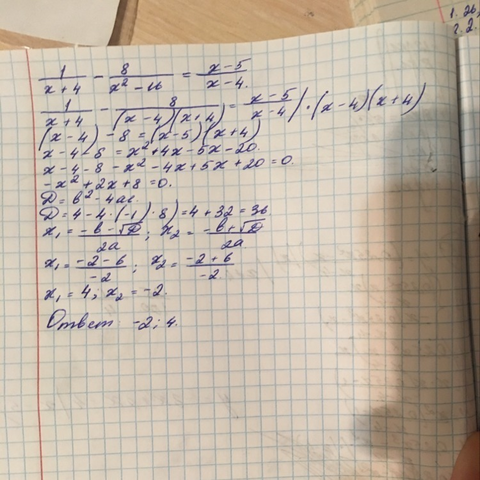 1/(x+4) - 8/(x²-16) = (x-5)/(x-4).
1/(x+4) - 8/((x-4)(x+4)) = (x-5)/(x-4) / · (x-4)(x+4)
(x-4) - 8 = (x-5)(x+4)
x-4-8 = x²+4x-5x-20.
x-4-8-x²-4x+5x+20=0.
-x²+2x+8=0.
D=b²-4ac.
D=4-4·(-1)·8)=4+32=36
x₁=(-b-√D)/2a; x₂=(-b+√D)/2a
x₁=(-2-6)/-2; x₂=(-2+6)/-2.
x₁=4; x₂=-2.
Ответ -2; 4.
1. 26,
2. 2.